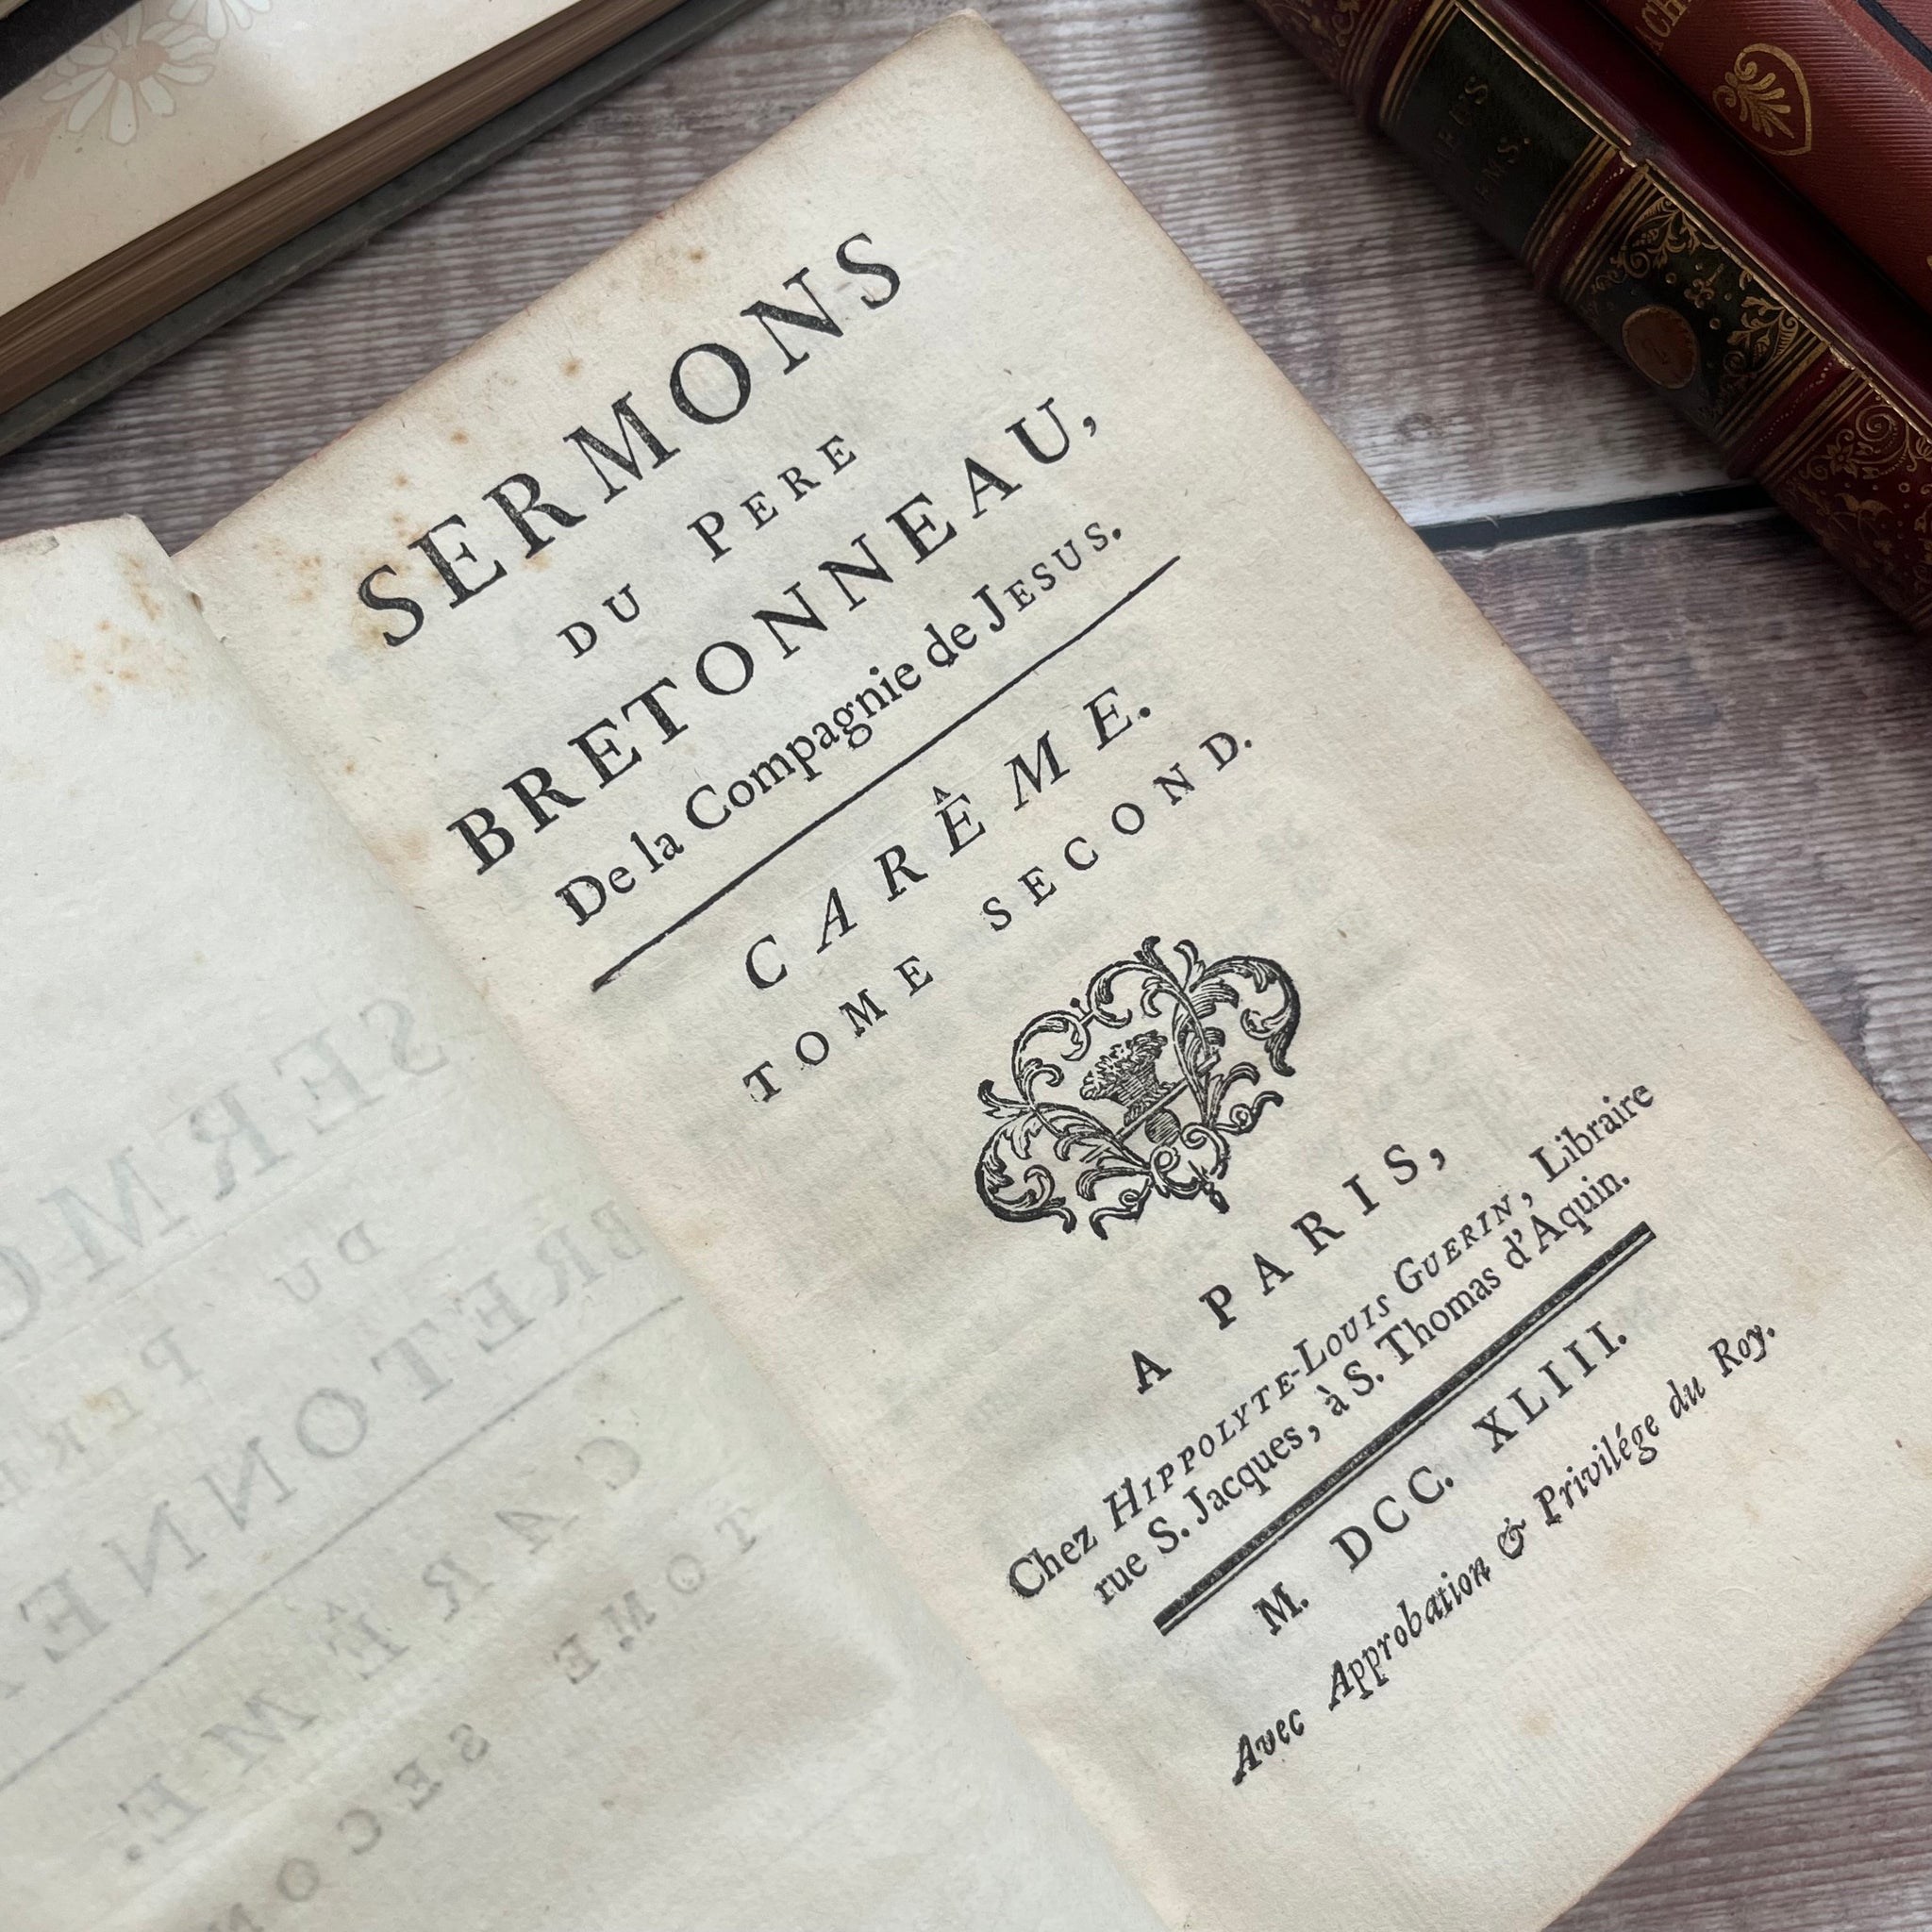 SERMONS
DU PERE
BRETONNEAU,
De la Compagnie de JESUS.
CARÊME.
TOME SECOND.
A PARIS,
Chez HIPPOLYTE-LOUIS GUERIN, Libraire
rue S. Jacques, à S. Thomas d'Aquin.
M. DCC. XLIII.
Avec Approbation & Privilége du Roy.
SERMO
DU PERE
BRETONNE
CARÊME.
TOME SECON